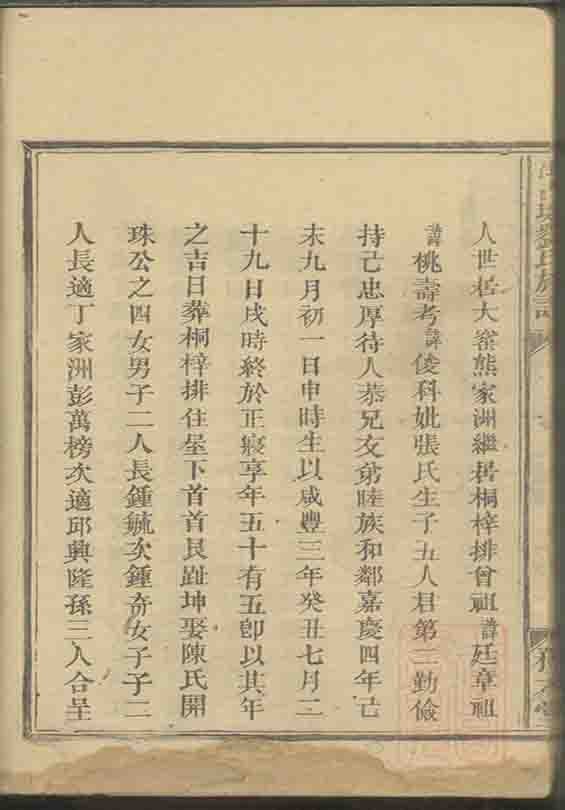 劉氏族譜
人世居大窰熊家洲繼居桐梓排曾祖諱廷章祖
諱桃壽考諱俊科妣張氏生子五人君第三勤儉
持己忠厚待人恭兄友弟睦族和鄰嘉慶四年己
未九月初一日申時生以咸豐三年癸丑七月二
十九日戌時終於正寢享年五十有五卽以其年
之吉日葬桐梓排住屋下首首艮趾坤娶陳氏開
珠公之四女男子二人長鍾毓次鍾奇女子子二
人長適丁家洲彭萬榜次適邱興隆孫三人合呈